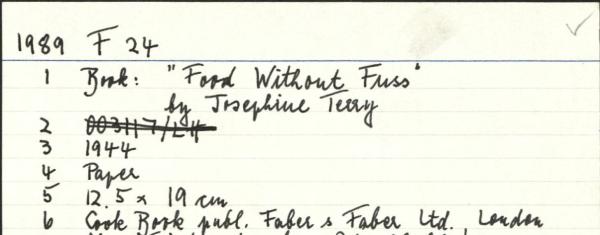 1989 F 24
1 Book: "Food Without Fuss"
by Josephine Terry
2 003117/L4
3 1944
4 Paper
5 12.5 x 19 cm
6 Cook Book publ. Faber & Faber Ltd. London